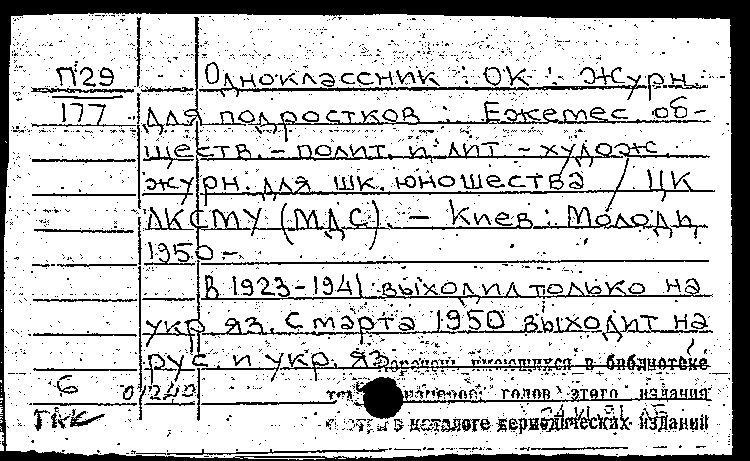 П29
177
Одноклассник : ОК : Журн.
для подростков : Ежемес. об-
ществ.-полит. и лит.-худож.
журн. для шк. юношества / ЦК
ЛКСМУ (МДС). - Киев : Молодь,
1950 -
В 1923-1941 выходил только на
укр. яз. С марта 1950 выходит на
рус. и укр. яз.
имеющихся в библиотеке
6 01240
номеров, годов этого издания
ТКК
в каталоге периодических изданий